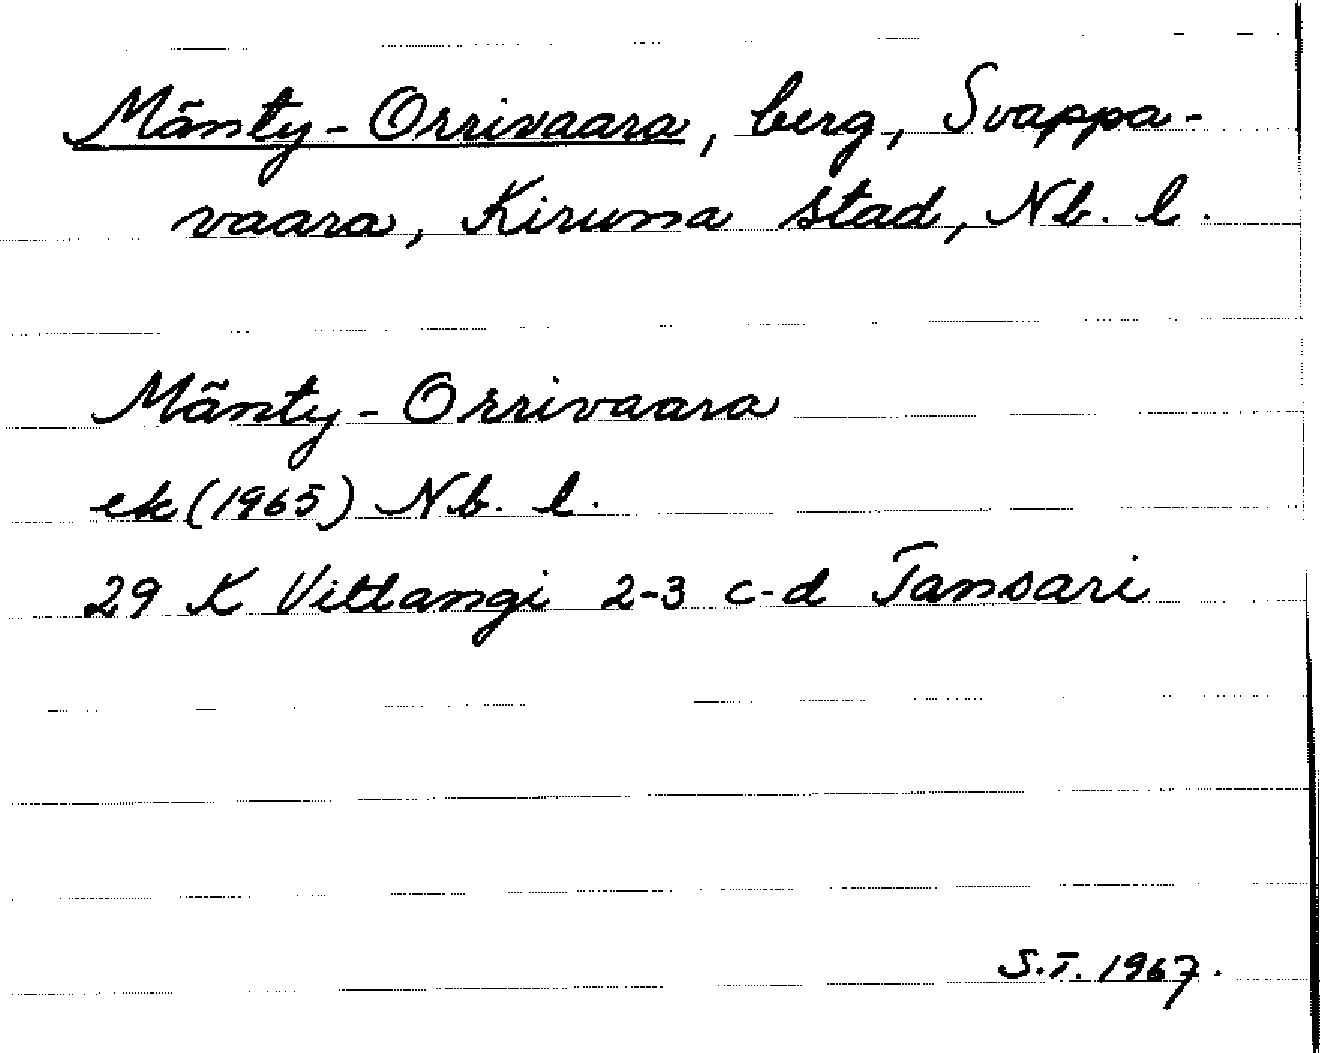 Mänty-Orrivaara, berg, Svappa-
vaara, Kiruna stad, Nb. l.
Mänty-Orrivaara
ek (1965) Nb. l.
29 K Vittangi 2-3 c-d Tansari
S.T. 1967.